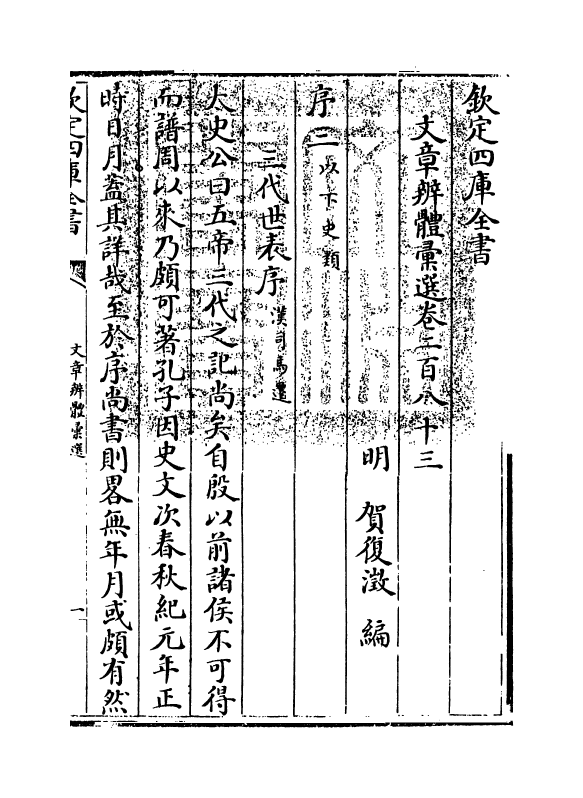 欽定四庫全書
文章辨體彙選卷二百八十三
明　賀復澂　編
序三以下史類
三代世表序漢司馬遷
太史公曰五帝三代之記尚矣自殷以前諸侯不可得
而譜周以來乃頗可著孔子因史文次春秋紀元年正
時日月蓋其詳哉至於序尚書則畧無年月或頗有然
欽定四庫全書
文章辨體彙選
一